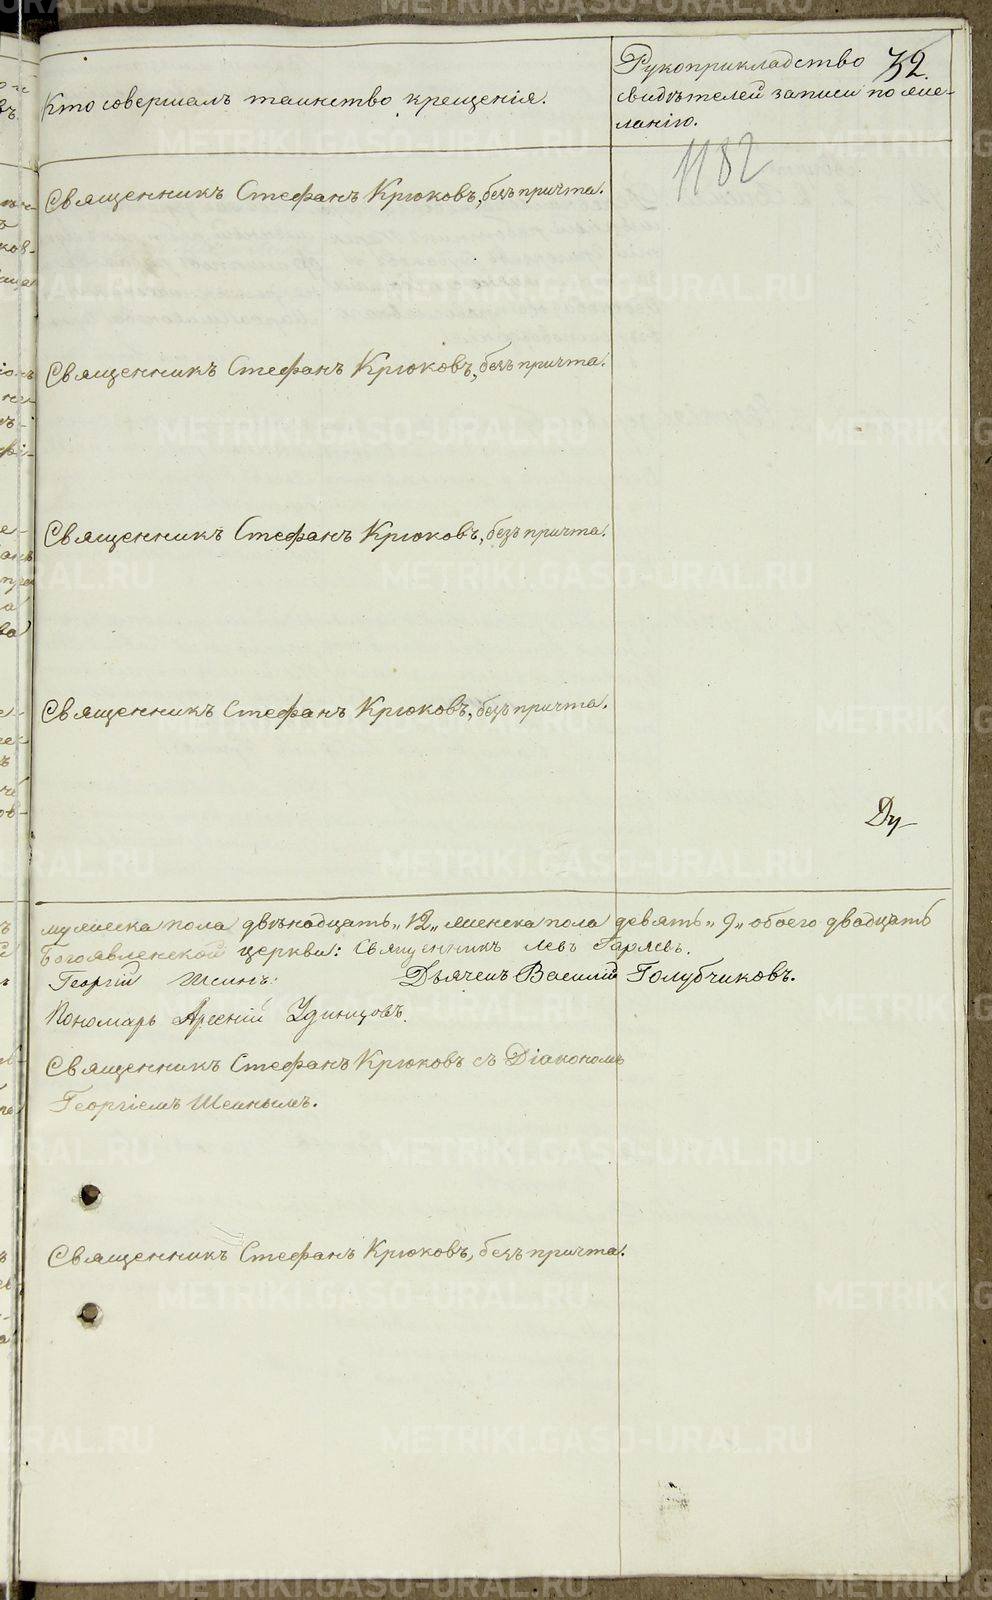 Кто совершалъ таинство крещенія.
Рукоприкладство
свидѣтелей записи по же-
ланію.
32.
1182
Священникъ Стефанъ Крюковъ, безъ причта.
Священникъ Стефанъ Крюковъ, безъ причта.
Священникъ Стефанъ Крюковъ, безъ причта.
Священникъ Стефанъ Крюковъ, безъ причта.
Ду
мужеска пола двѣнадцать „12„ женска пола девять „9„ обоего двадцать
Богоявленской церкви: Священникъ Левъ
Георгій Шеинъ. Дьячекъ Василій Голубчиковъ.
Пономарь Арсеній Удинцовъ.
Священникъ Стефанъ Крюковъ съ Діакономъ
Георгіемъ Шеинымъ.
Священникъ Стефанъ Крюковъ, безъ причта.
METRIKI.GASO-URAL.RU